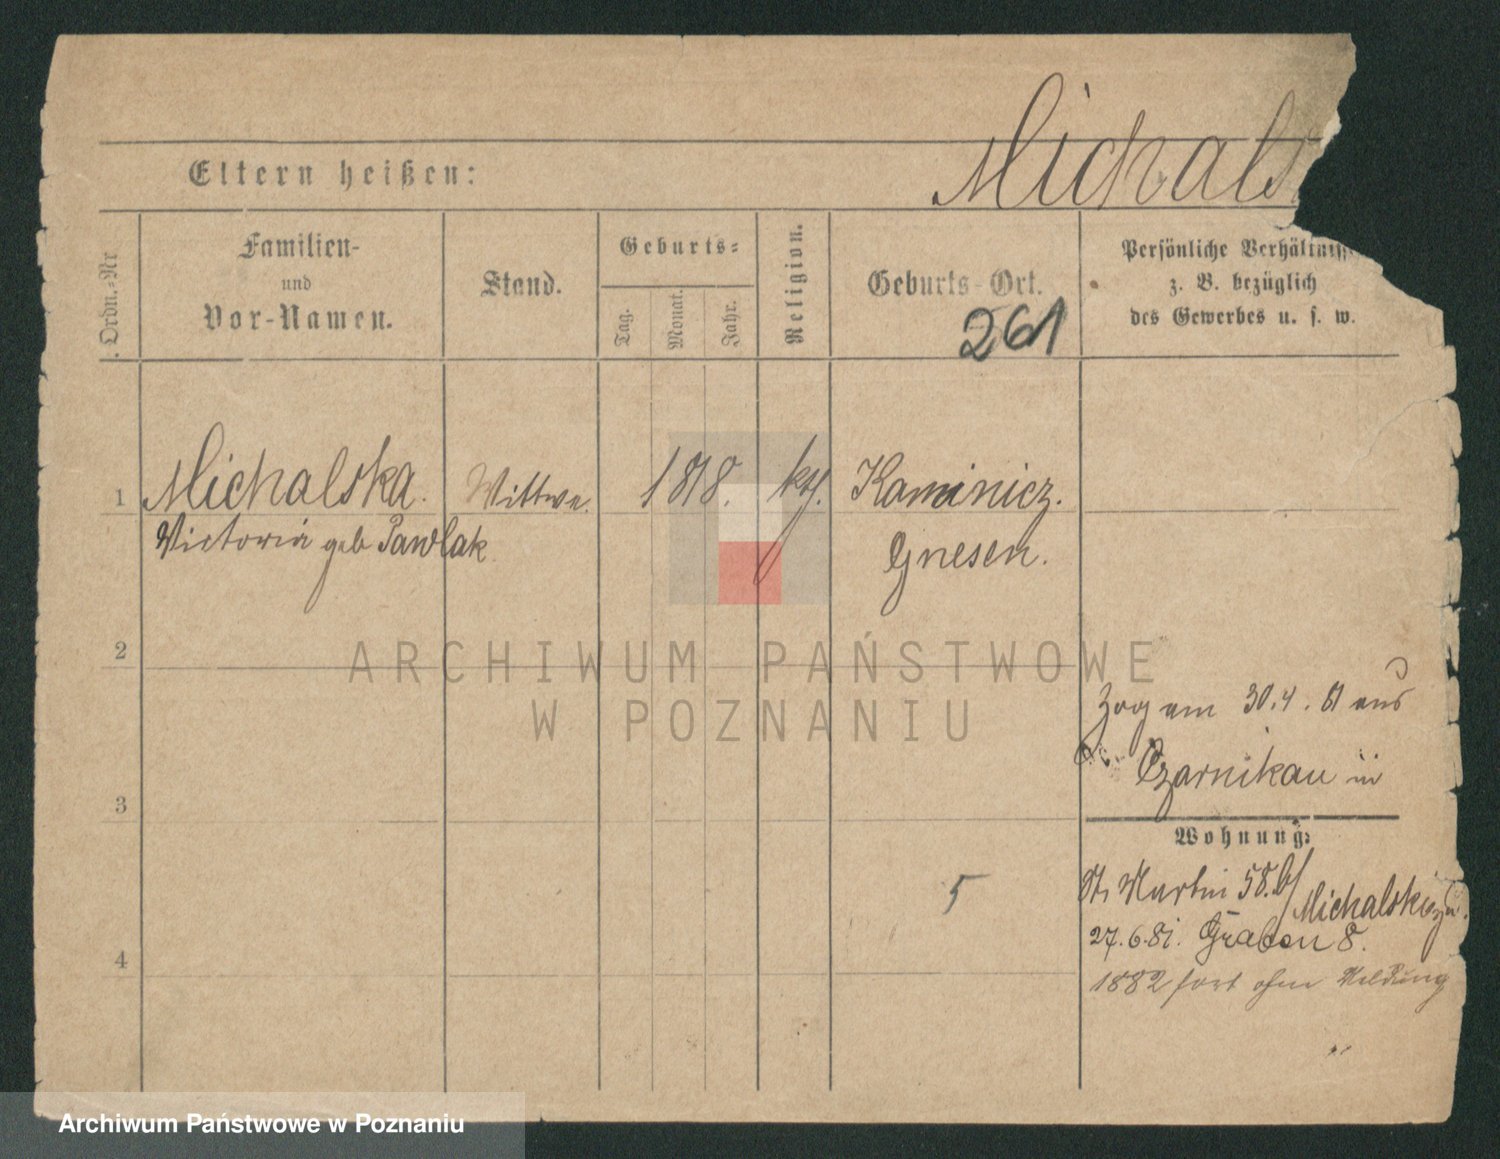 Michals
Eltern heißen:
Ordn.-Nr
Familien-
und
Vor-Namen.
Stand.
Geburts-
Tag.
Monat.
Jahr.
Religion.
Geburts-Ort.
261
Persönliche Verhältniss
z. B. bezüglich
des Gewerbes u. s. w.
1
Michalska.
Victoria geb Pawlak.
Wittwe.
1818.
kth.
Kaminicz.
Gnesen.
2
ARCHIWUM PAŃSTWOWE
W POZNANIU
Zog am 30.4. 81 aus
Czarnikau in
3
Wohnung:
St. Martin 58. b/
Michalski
27.6.81. Graben 8.
1882 fort ohne Meldung
5
4
Archiwum Państwowe w Poznaniu